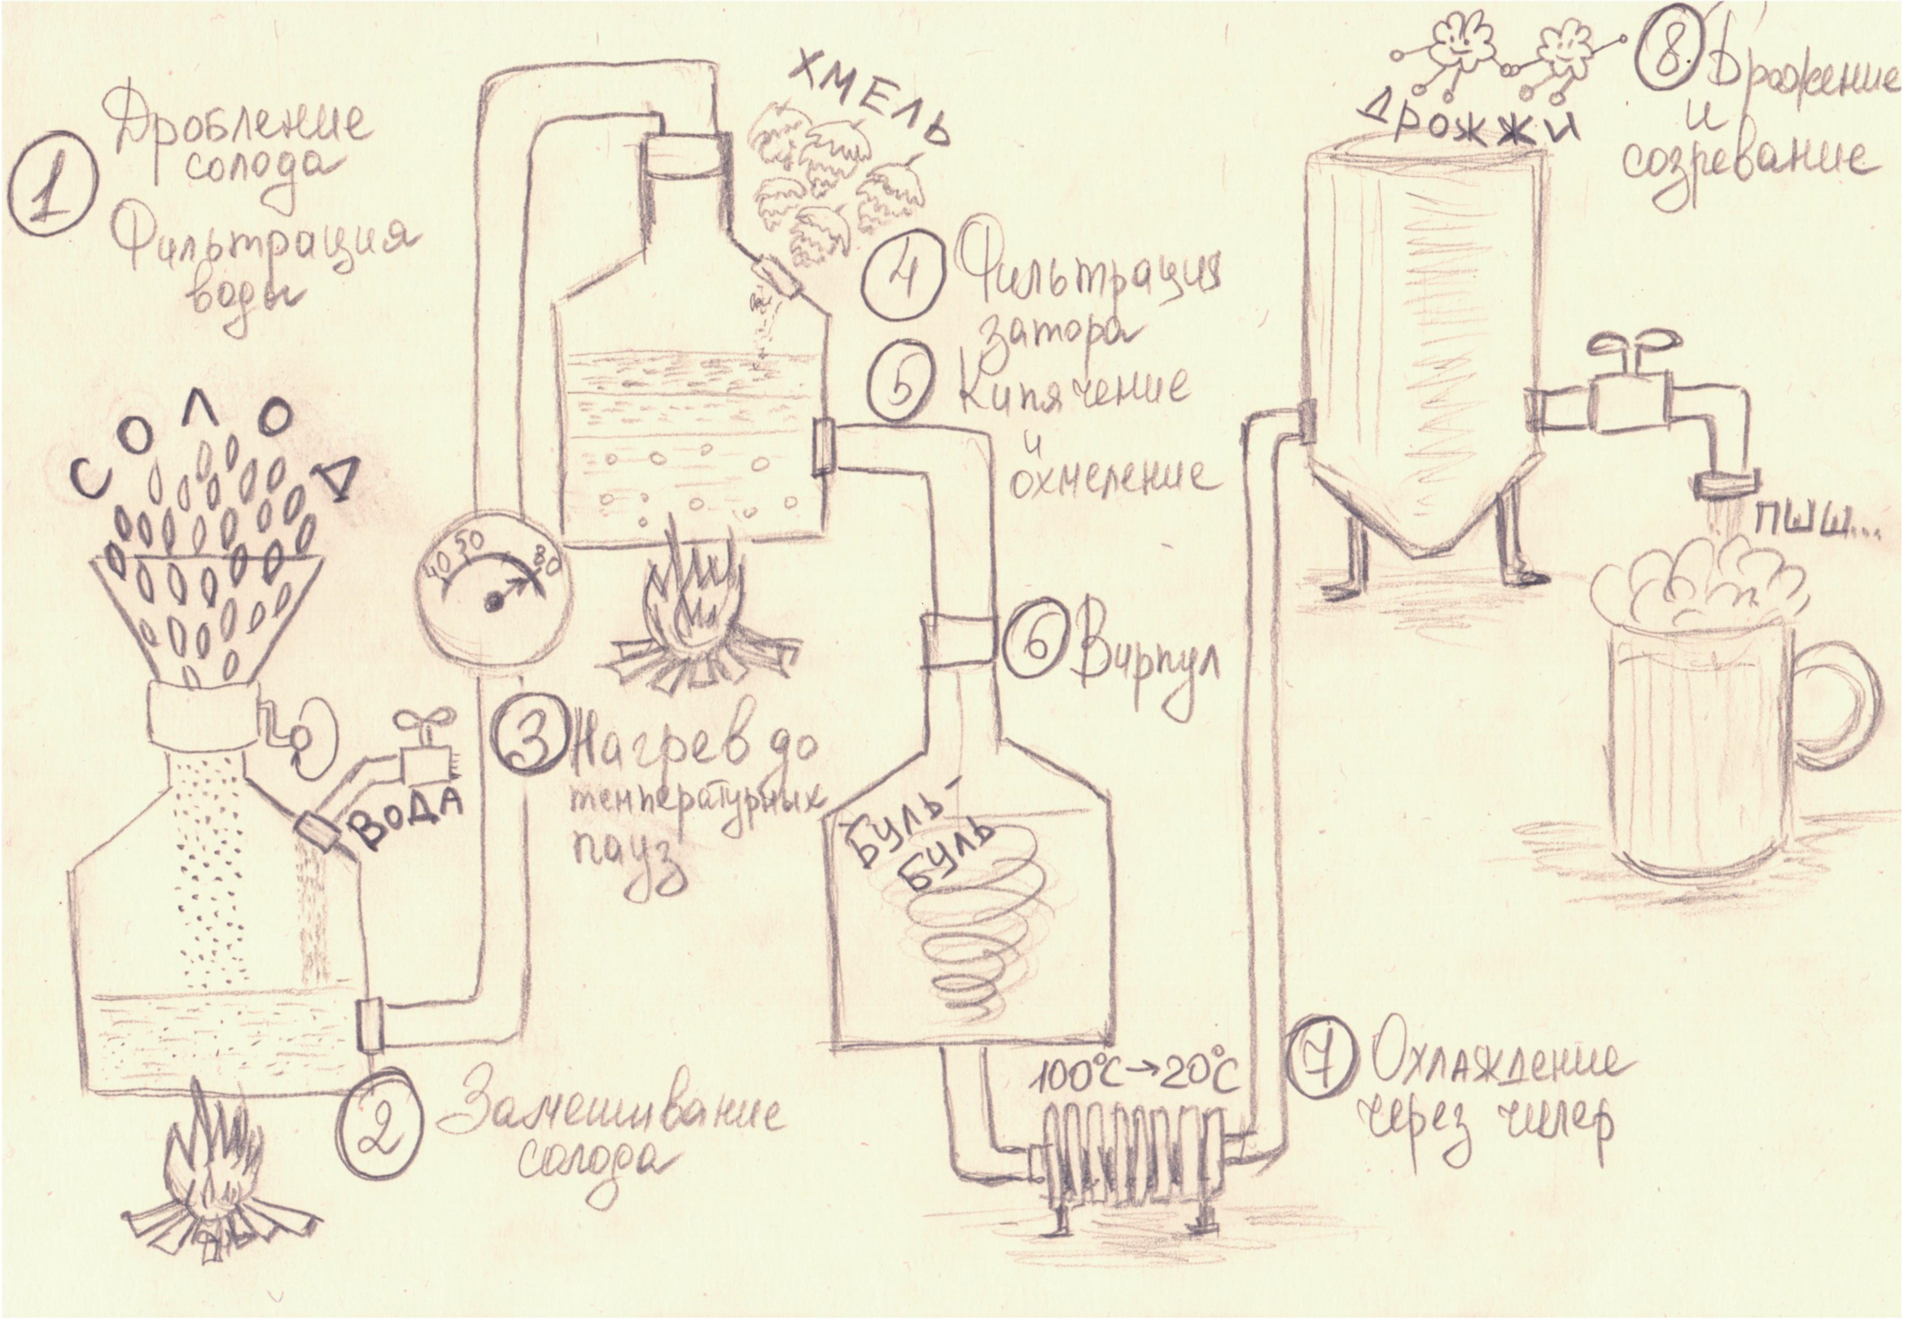 1
Дробление
солода
Фильтрация
воды
СОЛОД
ВОДА
2
Замешивание
солода
40 50 80
3
Нагрев до
температурных
пауз
ХМЕЛЬ
4
Фильтрация
затора
5
Кипячение
и
охмеление
6
Вирпул
БУЛЬ-
БУЛЬ
100°С→20°С
7
Охлаждение
через чилер
ДРОЖЖИ
8
Брожение
и
созревание
ПШШ...